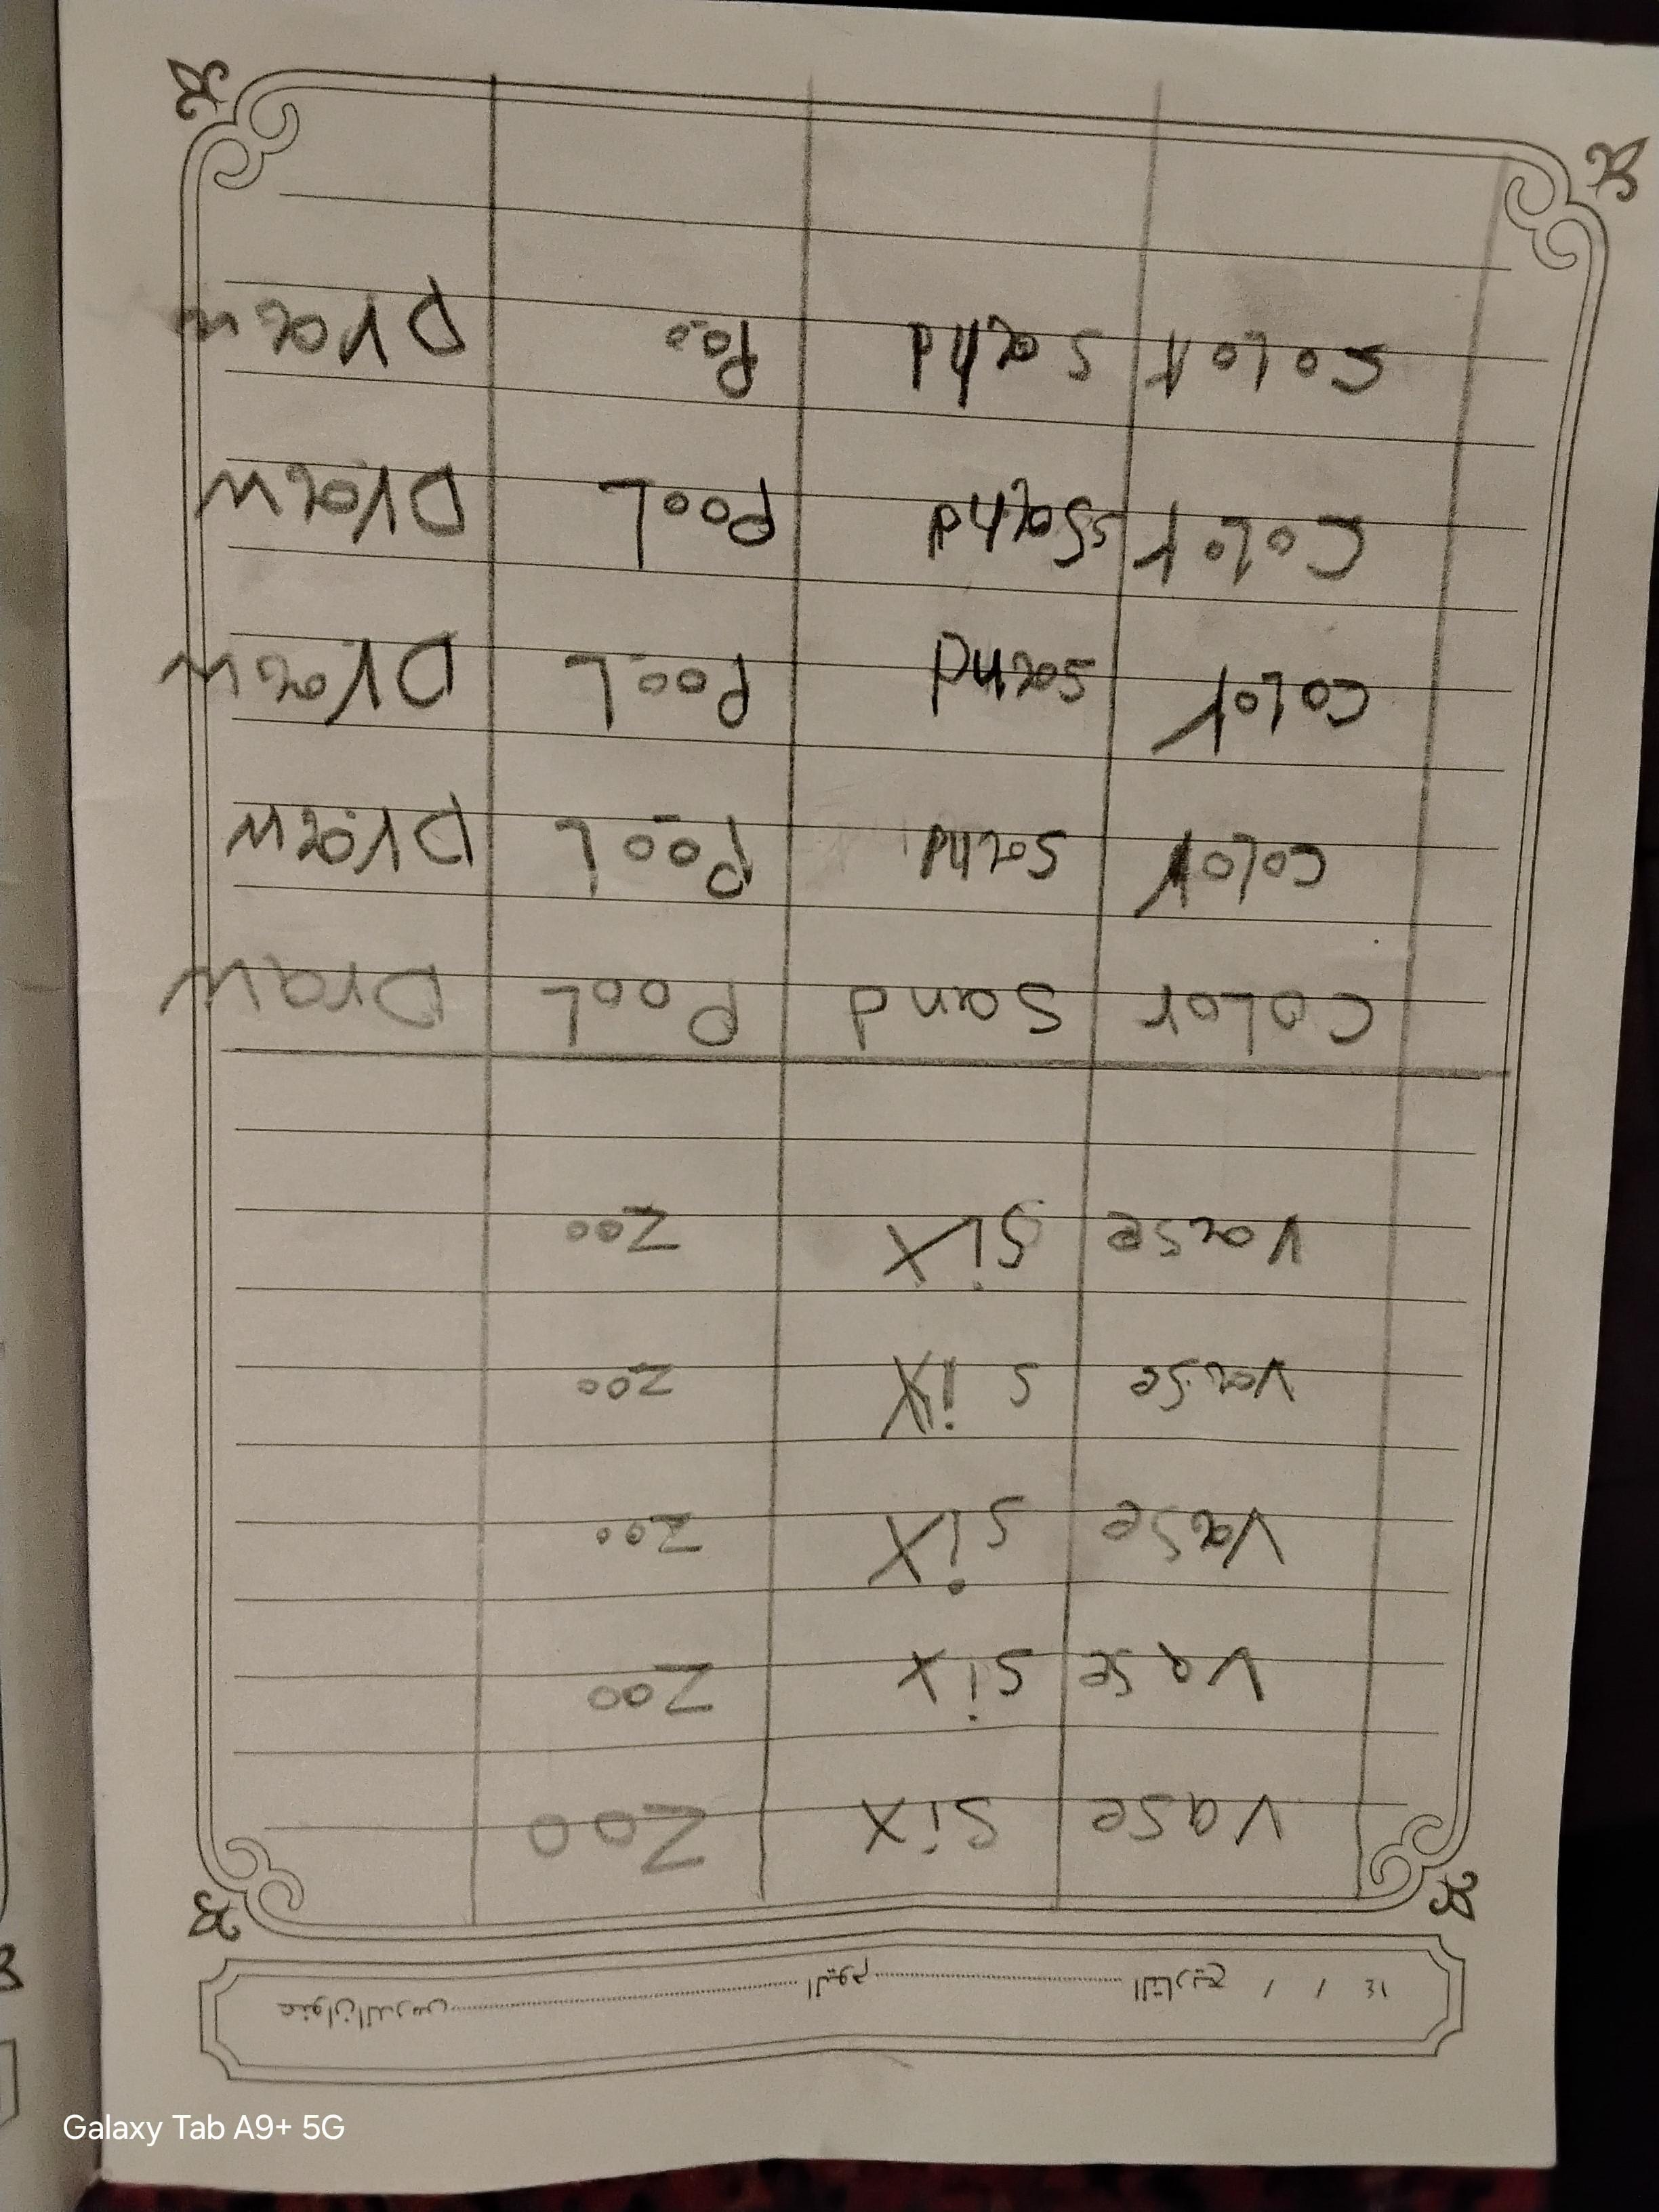 عنوان الدرس اليوم التاريخ / / ١٤
Vase six Zoo
Vase six Zoo
Vase six Zoo
Vase six Zoo
Vase six Zoo
Color Sand Pool Draw
Color Sand Pool Draw
Color Sand Pool Draw
Color sSand Pool Draw
Color Sand Poo Draw
Galaxy Tab A9+ 5G